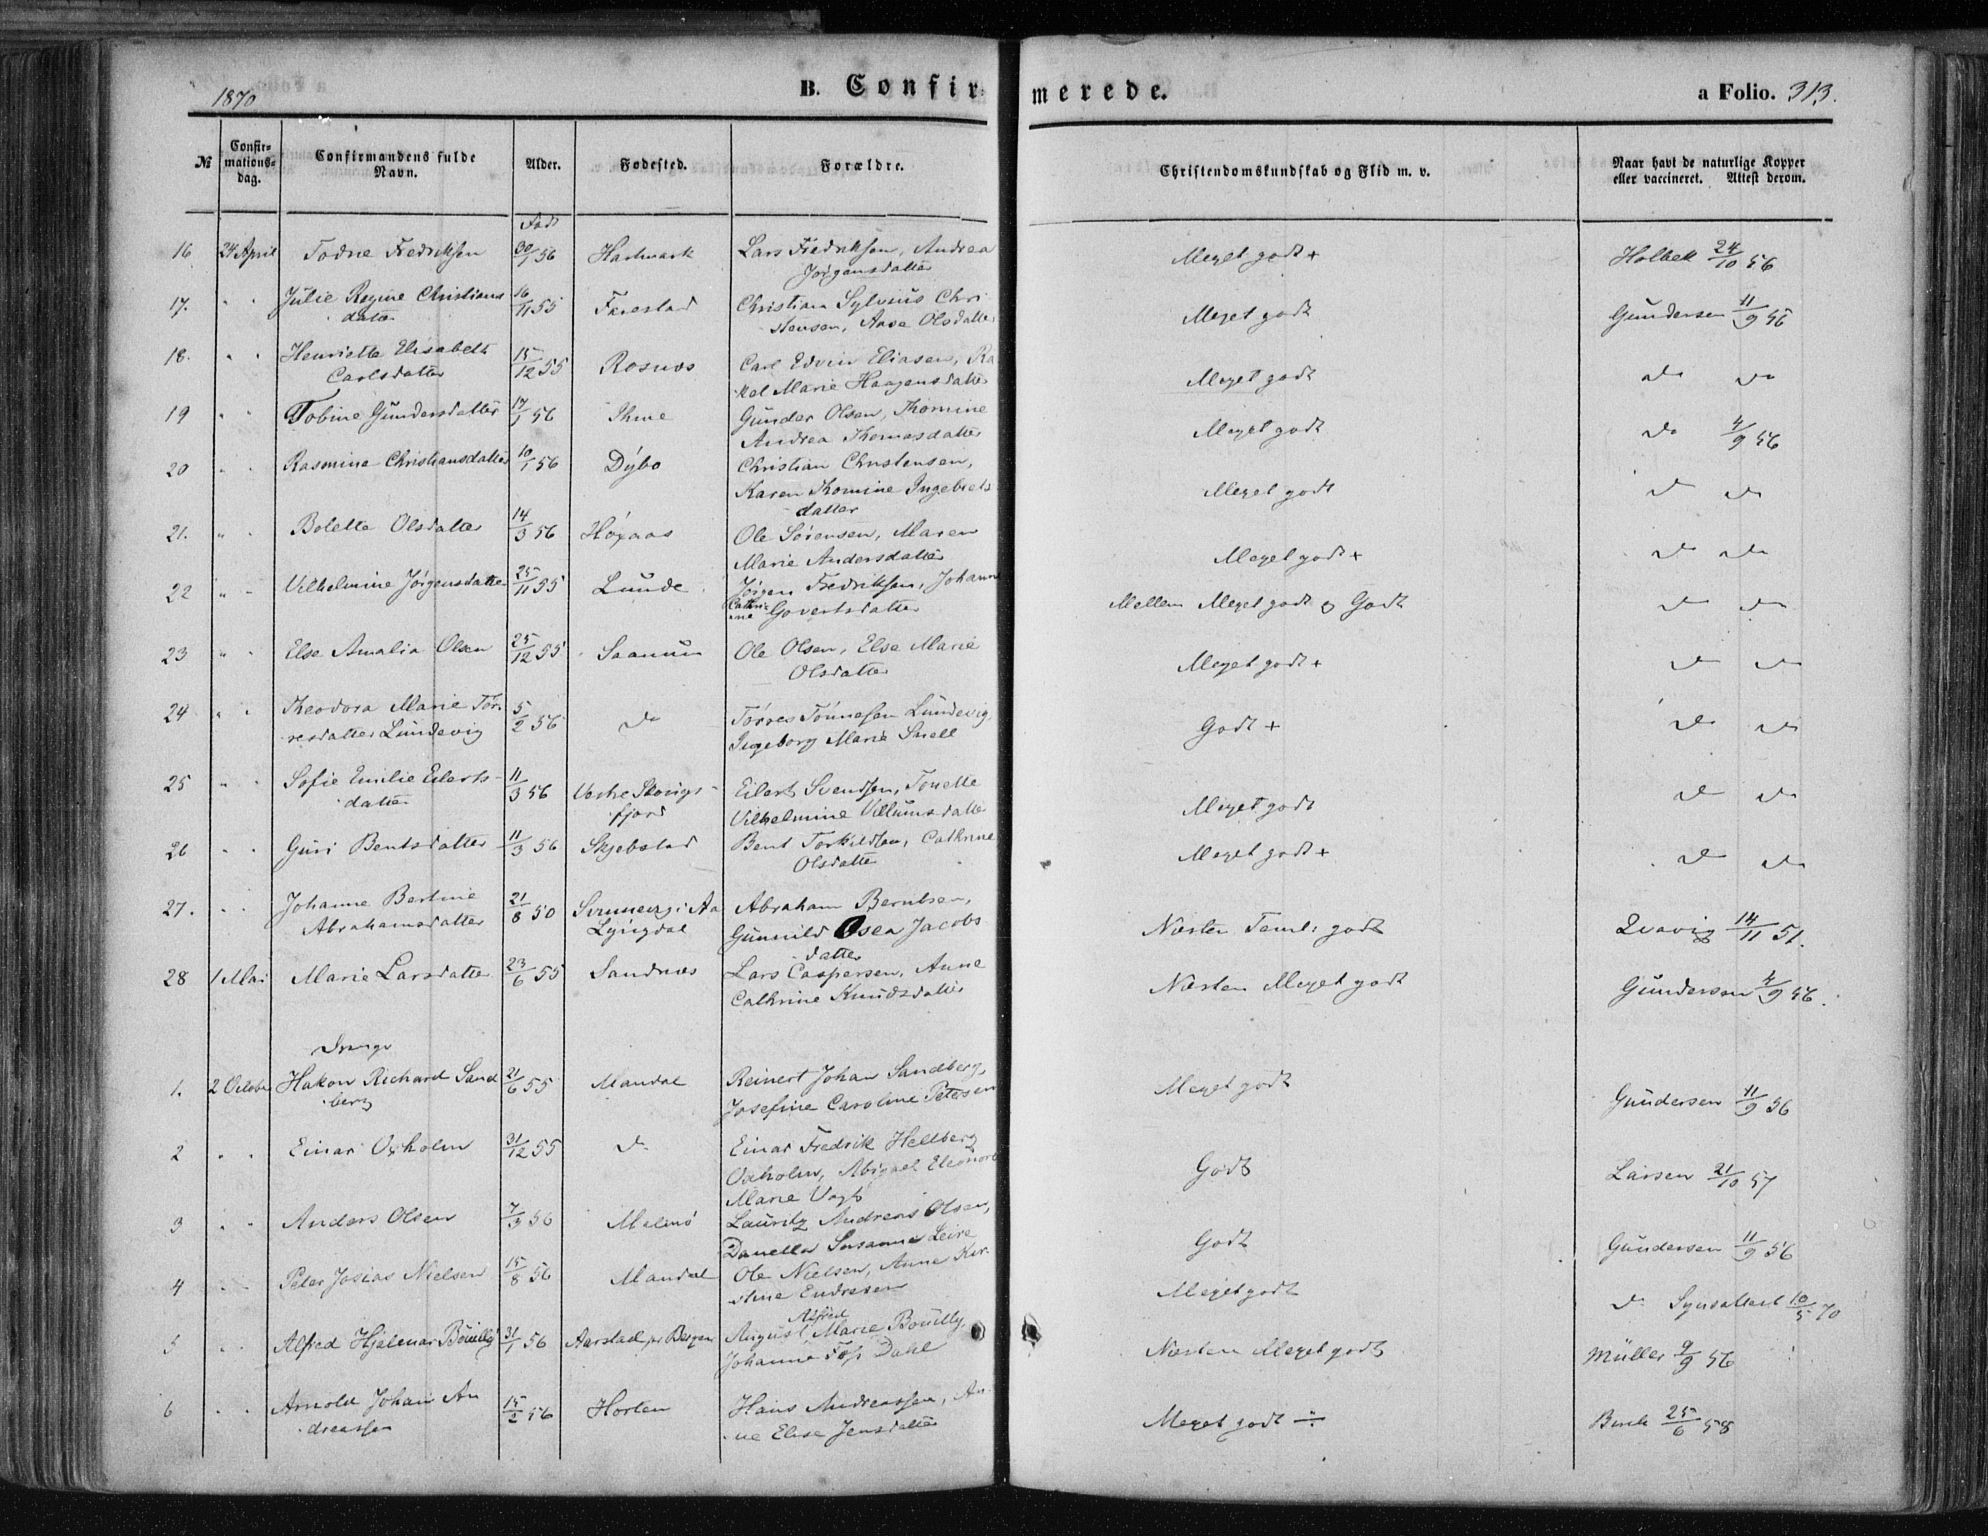 1870
B. Confirmerede.
a Folio. 313.
№
Confirmations-dag.
Confirmandens fulde Navn.
Alder.
Fødested.
Forældre.
Christendomskundskab og Flid m. v.
Naar havt de naturlige Kopper eller vaccineret. Attest derom.
Født
16 24 April Todne Fredriksen 30/1 56 Hartmark Lars Fredriksen, Andrea Jørgensdatter Meget godt + Holbek 24/10 56
17. " " Julie Regine Christiansdatter 16/11 55 Farestad Christian Sylvius Christensen, Aase Olsdatter Meget godt Gundersen 11/9 56
18. " " Henriette Elisabeth Carlsdatter 15/12 55 Rosnæs Carl Edvin Eliasen, Rakel Marie Haagensdatter Meget godt do do
19 " " Tobine Gundersdatter 17/1 56 Ihme Gunder Olsen, Thomine Andrea Thomasdatter Meget godt do 4/9 56
20 " " Rasmine Christiansdatter 10/1 56 Dybo Christian Christensen, Karen Thomine Ingebretsdatter Meget godt do do
21. " " Bolette Olsdatter 14/3 56 Høgaas Ole Sørensen, Maren Marie Andersdatter Meget godt + do do
22 " " Vilhelmine Jørgensdatter 25/11 55 Lunde Jørgen Fredriksen, Johanne Cathrine Govertsdatter Mellem Meget godt og Godt do do
23 " " Else Amalia Olsen 25/12 55 Saanum Ole Olsen, Else Marie Olsdatter Meget godt + do do
24 " " Theodora Marie Tørresdatter Lundevig 5/2 56 do Tørres Tønnesen Lundevig, Ingeborg Marie Snell Godt + do do
25 " " Sofie Emilie Eilertsdatter 11/3 56 Vestre Skovigsfjord Eilert Svendsen, Tonette Vilhelmine Villumsdatter Meget godt do do
26 " " Guri Bentsdatter 11/3 56 Skjebstad Bent Torkildsen, Cathrine Olsdatter Meget godt + do do
27. " " Johanne Bertine Abrahamsdatter 21/8 50 Lyngdal Abraham Berntsen, Gunnild Osea Jacobsdatter Næsten Teml: godt Qvavig 14/11 51.
28 1 Mai Marie Larsdatter 23/6 55 Sandnæs Lars Caspersen, Anne Cathrine Knudsdatter Næsten Meget godt Gundersen 4/9 56.
Drenge
1. 2 October Hakon Richard Sandberg 21/6 55 Mandal Reinert Johan Sandberg, Josefine Caroline Petersen Meget godt Gundersen 11/9 56
2 " " Einar Oxholm 31/12 55 do Einar Fredrik Hellberg Oxholm, Abigael Eleonore Marie Vogt Godt Larsen 21/10 57
3 " " Anders Olsen 7/3 56 Malmø Lauritz Andreas Olsen, Danella Susanne Leire Godt Gundersen 11/9 56
4 " " Peter Josias Nielsen 15/8 56 Mandal Ole Nielsen, Anne Kirstine Endresen Meget godt do Synsattest 10/5 70
5 " " Alfred Hjalmar Bouilly 31/1 56 Aarstad pr Bergen August Alfred Marie Bouilly, Johanne Dahl Næsten Meget godt Müller 9/9 56
6 " " Arnold Johan Andreassen 15/2 56 Horten Hans Andreassen, Anne Elise Jensdatter Meget godt ÷ Busch 25/6 58